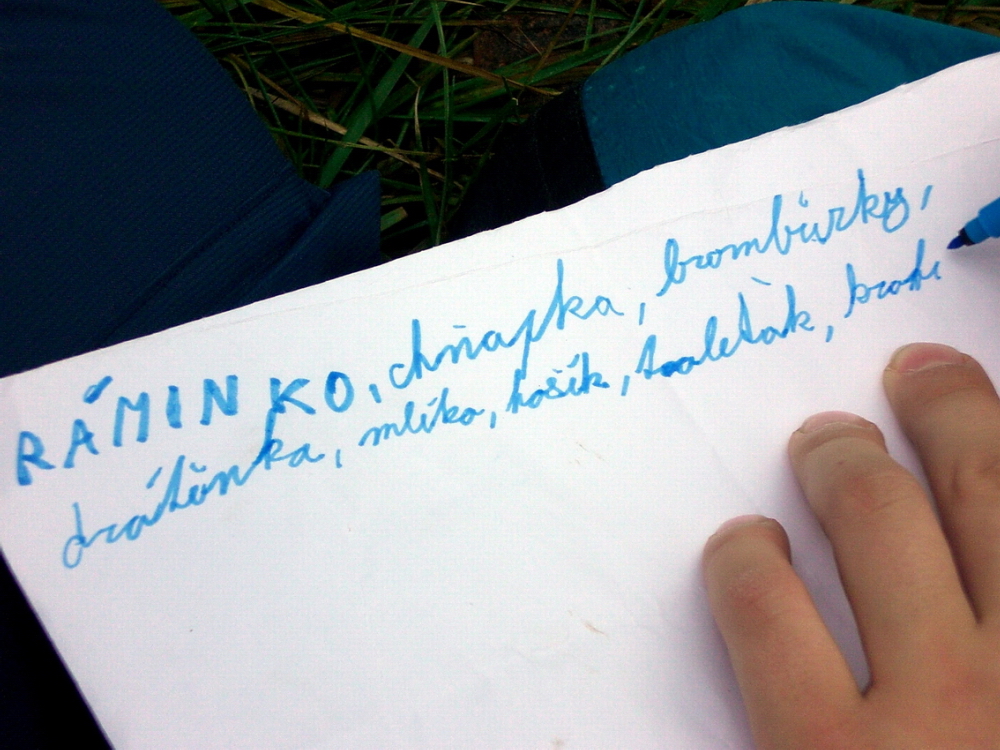 RÁMINKO, chňapka, brombůrky,
drátěnka, mlíko, košík, toaleťák,